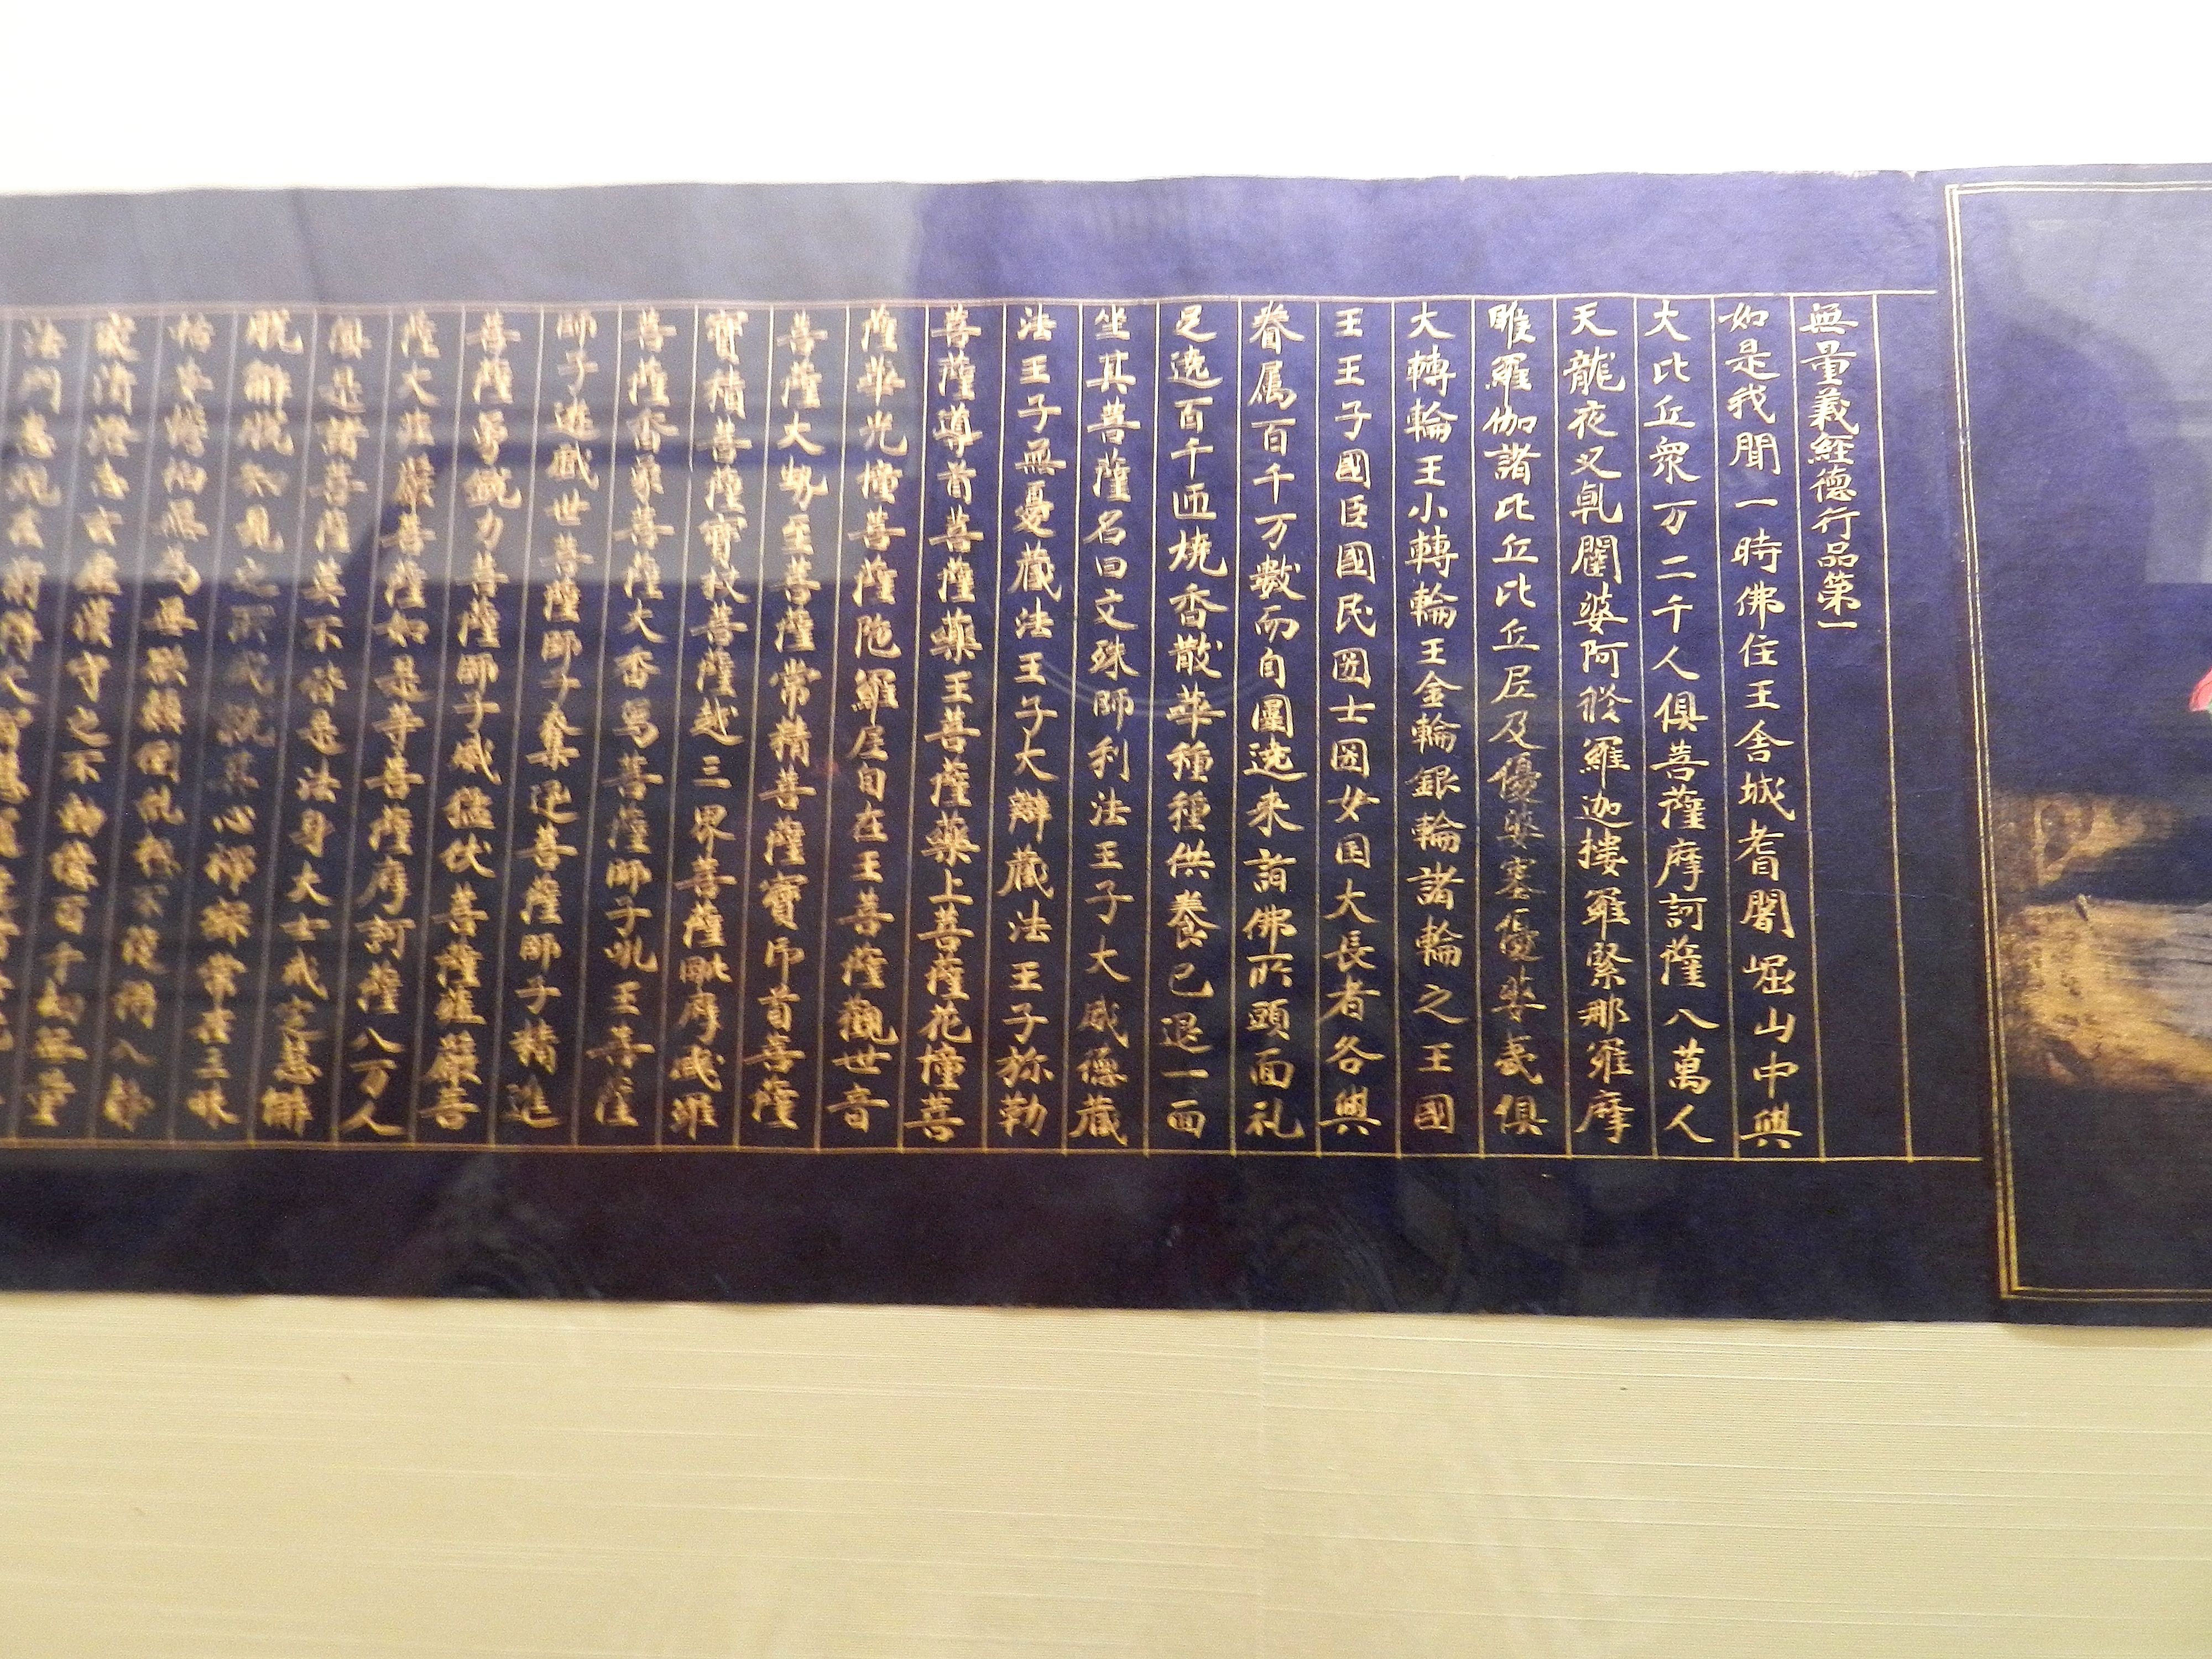 無量義経德行品第一
如是我聞一時佛住王舎城耆闍崛山中與
大比丘衆万二千人俱菩薩摩訶薩八萬人
天龍夜叉乹闥婆阿修羅迦樓羅緊那羅摩
睺羅伽諸比丘比丘尼及優婆塞優婆夷俱
大轉輪王小轉輪王金輪銀輪諸輪之王國
王王子國臣國民国士国女国大長者各與
眷属百千万數而自圍遶来詣佛所頭面礼
足遶百千匝燒香散華種種供養已退一面
坐其菩薩名曰文殊師利法王子大威德藏
法王子無憂藏法王子大辯藏法王子弥勒
菩薩導首菩薩藥王菩薩藥上菩薩花幢菩
薩華光幢菩薩陁羅尼自在王菩薩觀世音
菩薩大勢至菩薩常精菩薩寶印首菩薩
寶積菩薩寶杖菩薩越三界菩薩毗摩䟦羅
菩薩香象菩薩大香象菩薩師子吼王菩薩
師子遊戲世菩薩師子奮迅菩薩師子精進
菩薩勇銳力菩薩師子威猛伏菩薩莊嚴菩
薩大莊嚴菩薩如是等菩薩摩訶薩八万人
俱是諸菩薩莫不皆是法身大士戒定慧解
脱解脱知見之所成就其心禪寂常在三昧
恬安憺怕無為無欲顛倒乱想不復得入静
寂清澄志玄虛漠守之不動億百千劫無量
法門悉現在前得大智慧